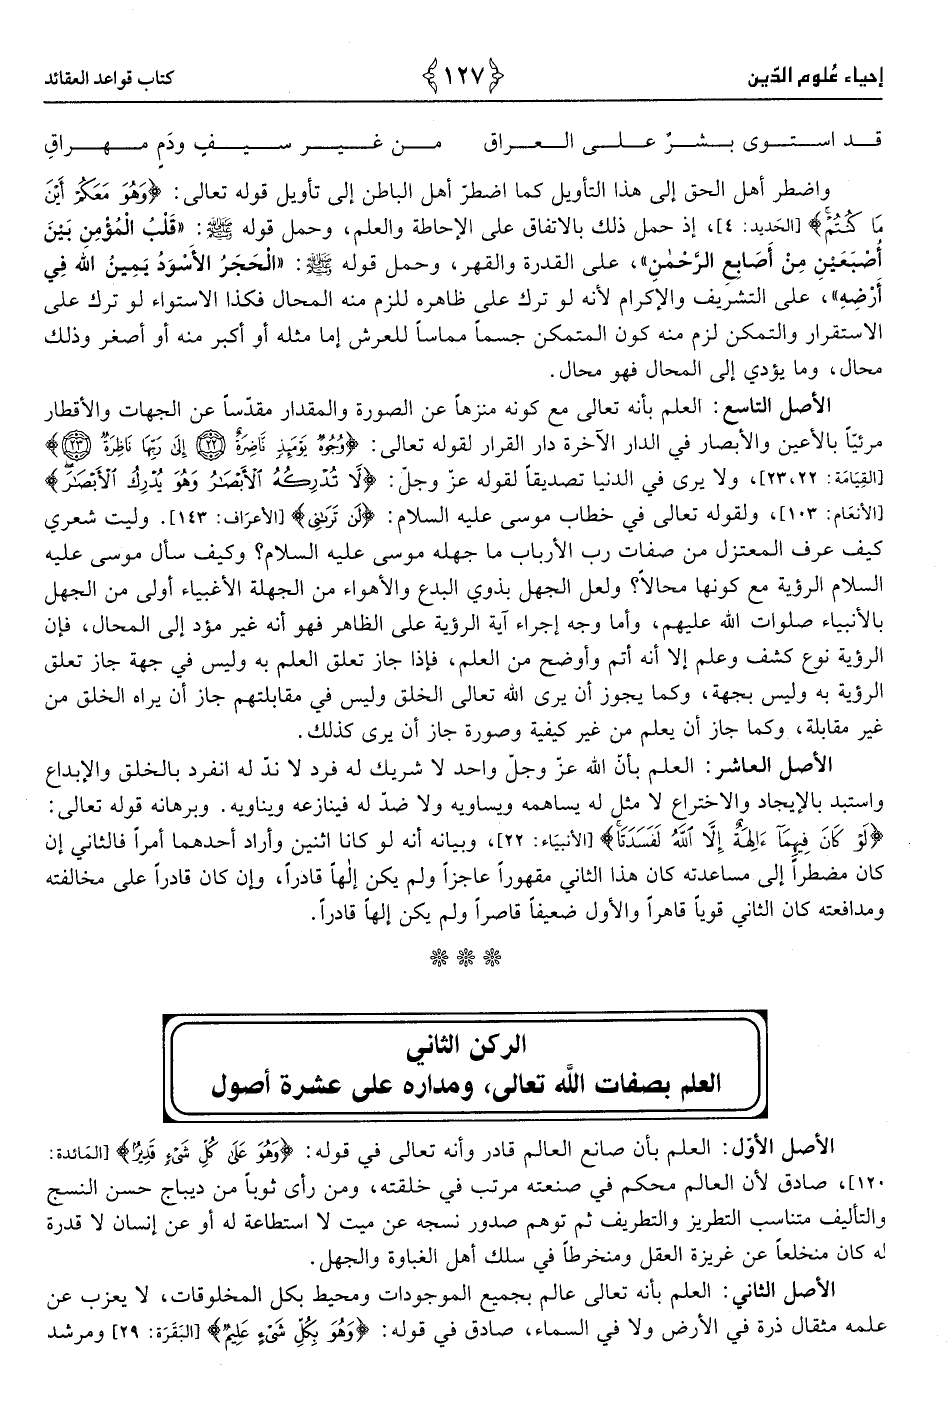 إحياء عُلوم الدّين ﴿١٢٧﴾ كتاب قواعد العقائد
قد استوى بشرٌ على العراق من غير سيفٍ ودَمٍ مهراقِ
واضطر أهل الحق إلى هذا التأويل كما اضطرّ أهل الباطن إلى تأويل قوله تعالى: ﴿وَهُوَ مَعَكُمْ أَيْنَ
مَا كُنتُمْ﴾ [الحَديد: ٤]، إذ حمل ذلك بالاتفاق على الإحاطة والعلم، وحمل قوله ﷺ: «قَلْبُ الْمُؤْمِنِ بَيْنَ
أُصْبَعَيْنِ مِنْ أَصَابِعِ الرَّحْمٰنِ»، على القدرة والقهر، وحمل قوله ﷺ: «الْحَجَرُ الأَسْوَدُ يَمِينُ الله فِي
أَرْضِهِ»، على التشريف والإكرام لأنه لو ترك على ظاهره للزم منه المحال فكذا الاستواء لو ترك على
الاستقرار والتمكن لزم منه كون المتمكن جسماً مماساً للعرش إما مثله أو أكبر منه أو أصغر وذلك
محال، وما يؤدي إلى المحال فهو محال.
الأصل التاسع: العلم بأنه تعالى مع كونه منزهاً عن الصورة والمقدار مقدّساً عن الجهات والأقطار
مرئيّاً بالأعين والأبصار في الدار الآخرة دار القرار لقوله تعالى: ﴿وُجُوهٌ يَوْمَئِذٍ نَّاضِرَةٌ ﴿٢٢﴾ إِلَىٰ رَبِّهَا نَاظِرَةٌ ﴿٢٣﴾﴾
[القِيَامَة: ٢٣،٢٢]، ولا يرى في الدنيا تصديقاً لقوله عزّ وجلّ: ﴿لَّا تُدْرِكُهُ ٱلْأَبْصَٰرُ وَهُوَ يُدْرِكُ ٱلْأَبْصَٰرَ﴾
[الأنعَام: ١٠٣]، ولقوله تعالى في خطاب موسى عليه السلام: ﴿لَن تَرَىٰنِى﴾ [الأعرَاف: ١٤٣]. وليت شعري
كيف عرف المعتزل من صفات رب الأرباب ما جهله موسى عليه السلام؟ وكيف سأل موسى عليه
السلام الرؤية مع كونها محالاً؟ ولعل الجهل بذوي البدع والأهواء من الجهلة الأغبياء أولى من الجهل
بالأنبياء صلوات الله عليهم، وأما وجه إجراء آية الرؤية على الظاهر فهو أنه غير مؤد إلى المحال، فإن
الرؤية نوع كشف وعلم إلا أنه أتم وأوضح من العلم، فإذا جاز تعلق العلم به وليس في جهة جاز تعلق
الرؤية به وليس بجهة، وكما يجوز أن يرى الله تعالى الخلق وليس في مقابلتهم جاز أن يراه الخلق من
غير مقابلة، وكما جاز أن يعلم من غير كيفية وصورة جاز أن يرى كذلك.
الأصل العاشر: العلم بأنّ الله عزّ وجلّ واحد لا شريك له فرد لا ندّ له انفرد بالخلق والإبداع
واستبد بالإيجاد والاختراع لا مثل له يساهمه ويساويه ولا ضدّ له فينازعه ويناويه. وبرهانه قوله تعالى:
﴿لَوْ كَانَ فِيهِمَآ ءَالِهَةٌ إِلَّا ٱللَّهُ لَفَسَدَتَا﴾ [الأنبيَاء: ٢٢]، وبيانه أنه لو كانا اثنين وأراد أحدهما أمراً فالثاني إن
كان مضطراً إلى مساعدته كان هذا الثاني مقهوراً عاجزاً ولم يكن إلٰهاً قادراً، وإن كان قادراً على مخالفته
ومدافعته كان الثاني قوياً قاهراً والأول ضعيفاً قاصراً ولم يكن إلهاً قادراً.
❊ ❊ ❊
الركن الثاني
العلم بصفات اللَّه تعالى، ومداره على عشرة أصول
الأصل الأوّل: العلم بأن صانع العالم قادر وأنه تعالى في قوله: ﴿وَهُوَ عَلَىٰ كُلِّ شَىْءٍ قَدِيرٌ﴾ [المَائدة:
١٢٠]، صادق لأن العالم محكم في صنعته مرتب في خلقته، ومن رأى ثوباً من ديباج حسن النسج
والتأليف متناسب التطريز والتطريف ثم توهم صدور نسجه عن ميت لا استطاعة له أو عن إنسان لا قدرة
له كان منخلعاً عن غريزة العقل ومنخرطاً في سلك أهل الغباوة والجهل.
الأصل الثاني: العلم بأنه تعالى عالم بجميع الموجودات ومحيط بكل المخلوقات، لا يعزب عن
علمه مثقال ذرة في الأرض ولا في السماء، صادق في قوله: ﴿وَهُوَ بِكُلِّ شَىْءٍ عَلِيمٌ﴾ [البَقَرَة: ٢٩] ومرشد